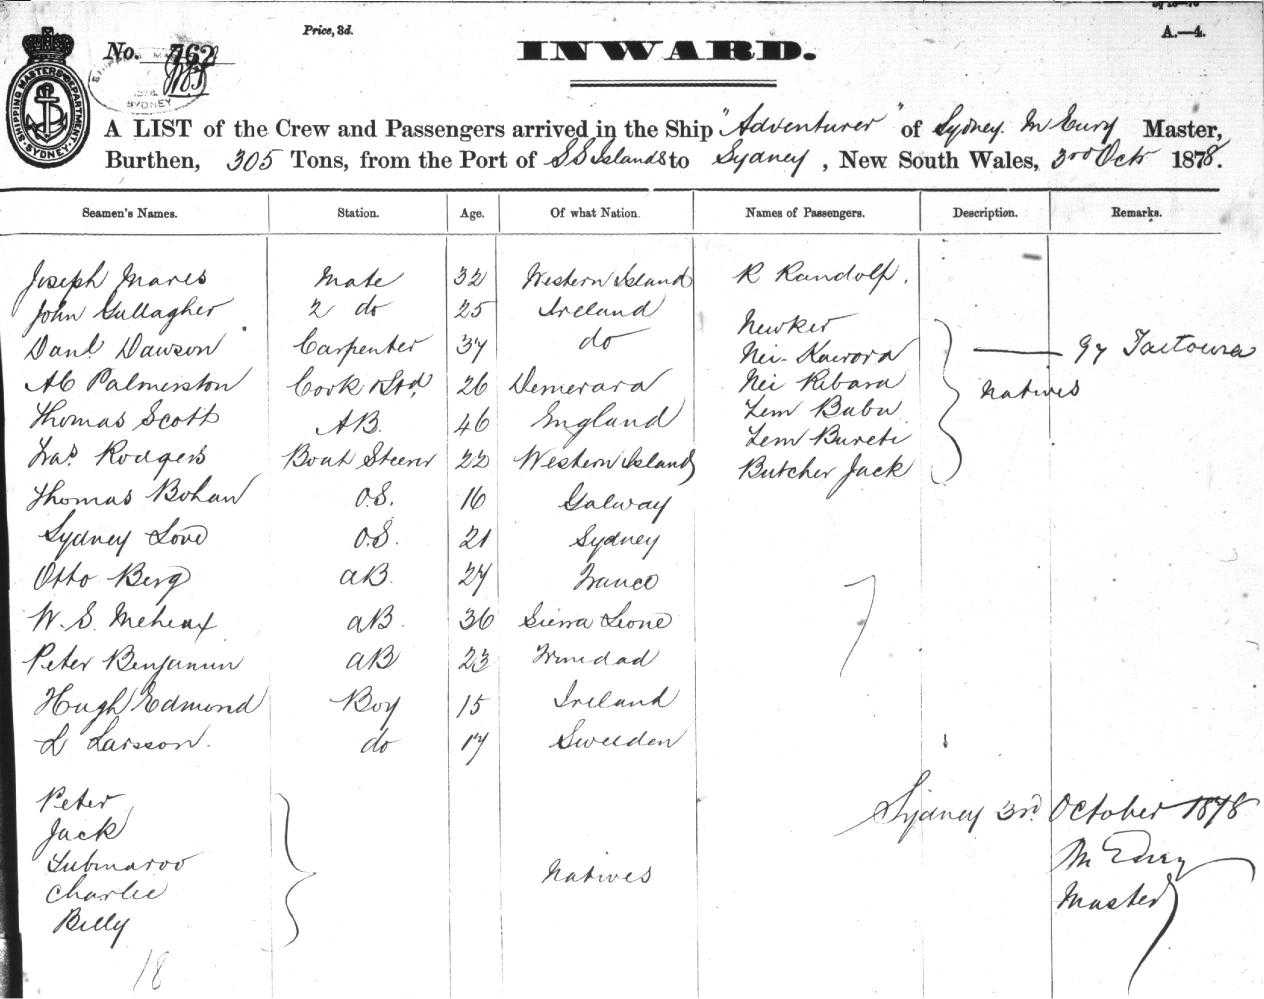 A.—4.
Price, 3d.
No. 762
INWARD.
SHIPPING MASTERS DEPARTMENT SYDNEY
SYDNEY
A LIST of the Crew and Passengers arrived in the Ship "Adventurer" of Sydney. M Master,
Burthen, 305 Tons, from the Port of S S Islands to Sydney, New South Wales, 3rd Octr 1878.
Seamen's Names. Station. Age. Of what Nation. Names of Passengers. Description. Remarks.
Joseph Mares Mate 32 Western Island R Randolf.
John Gallagher 2 do 25 Ireland Newker
Danl. Dawson Carpenter 37 do Nei-Kaurora
AC Palmerston Cook & Std, 26 Demerara Nei Ribara natives
Thomas Scott AB. 46 England Tem Babu
Fras Rodgers Boat Steerer 22 Western Island Tem Bureti
Butcher Jack
Thomas Bohan O.S. 16 Galway
Sydney Love O.S. 21 Sydney
Otto Berg AB. 24 France
W. S. Meheux AB. 36 Sierra Leone
Peter Benjamin AB 23 Trinidad
Hugh Edmond Boy 15 Ireland
L Larsson. do 17 Sweeden
Peter
Jack
Submaroo
Charlie natives
Billy
18
Sydney 3rd. October 1878
Master